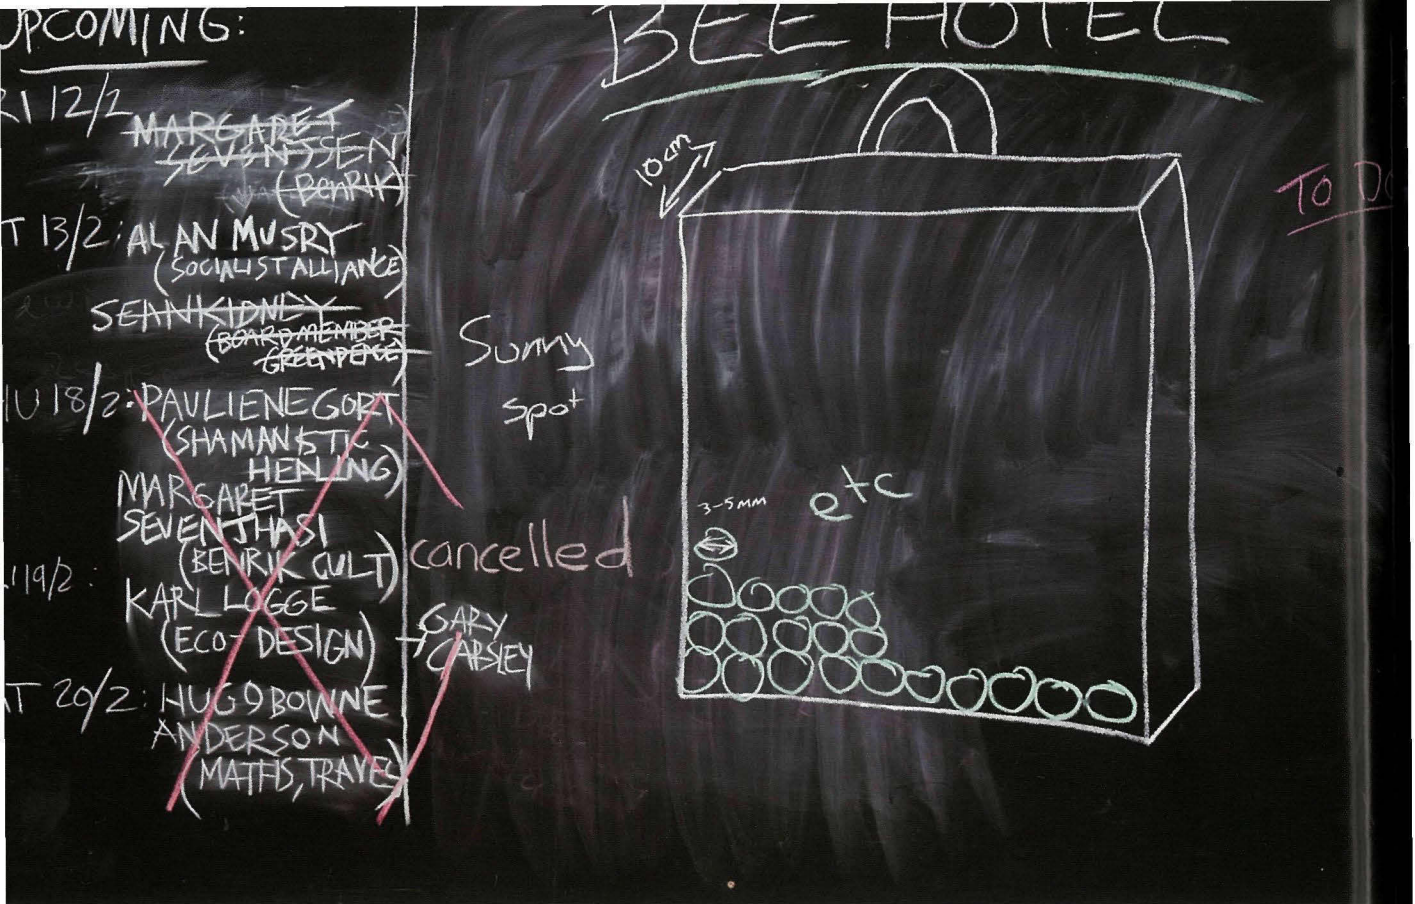 UPCOMING:
RI 12/2
MARGARET
SEVENSSEN
(BENRIK)
T 13/2: ALAN MUSRY
(SOCIALIST ALLIANCE)
SEAN KIDNEY
(BOARD MEMBER
GREENPEACE)
HU 18/2: PAULIENE GORT
(SHAMANISTIC
HEALING)
MARGARET
SEVENTHASI
(BENRIK CULT)
I 19/2:
KARL LOGGE
(ECO-DESIGN)
T 20/2: HUGO BOWNE
ANDERSON
(MATHS, TRAVEL)
cancelled
GARY
CARSLEY
BEE HOTEL
10cm
Sunny
spot
3-5mm
etc
TO DO